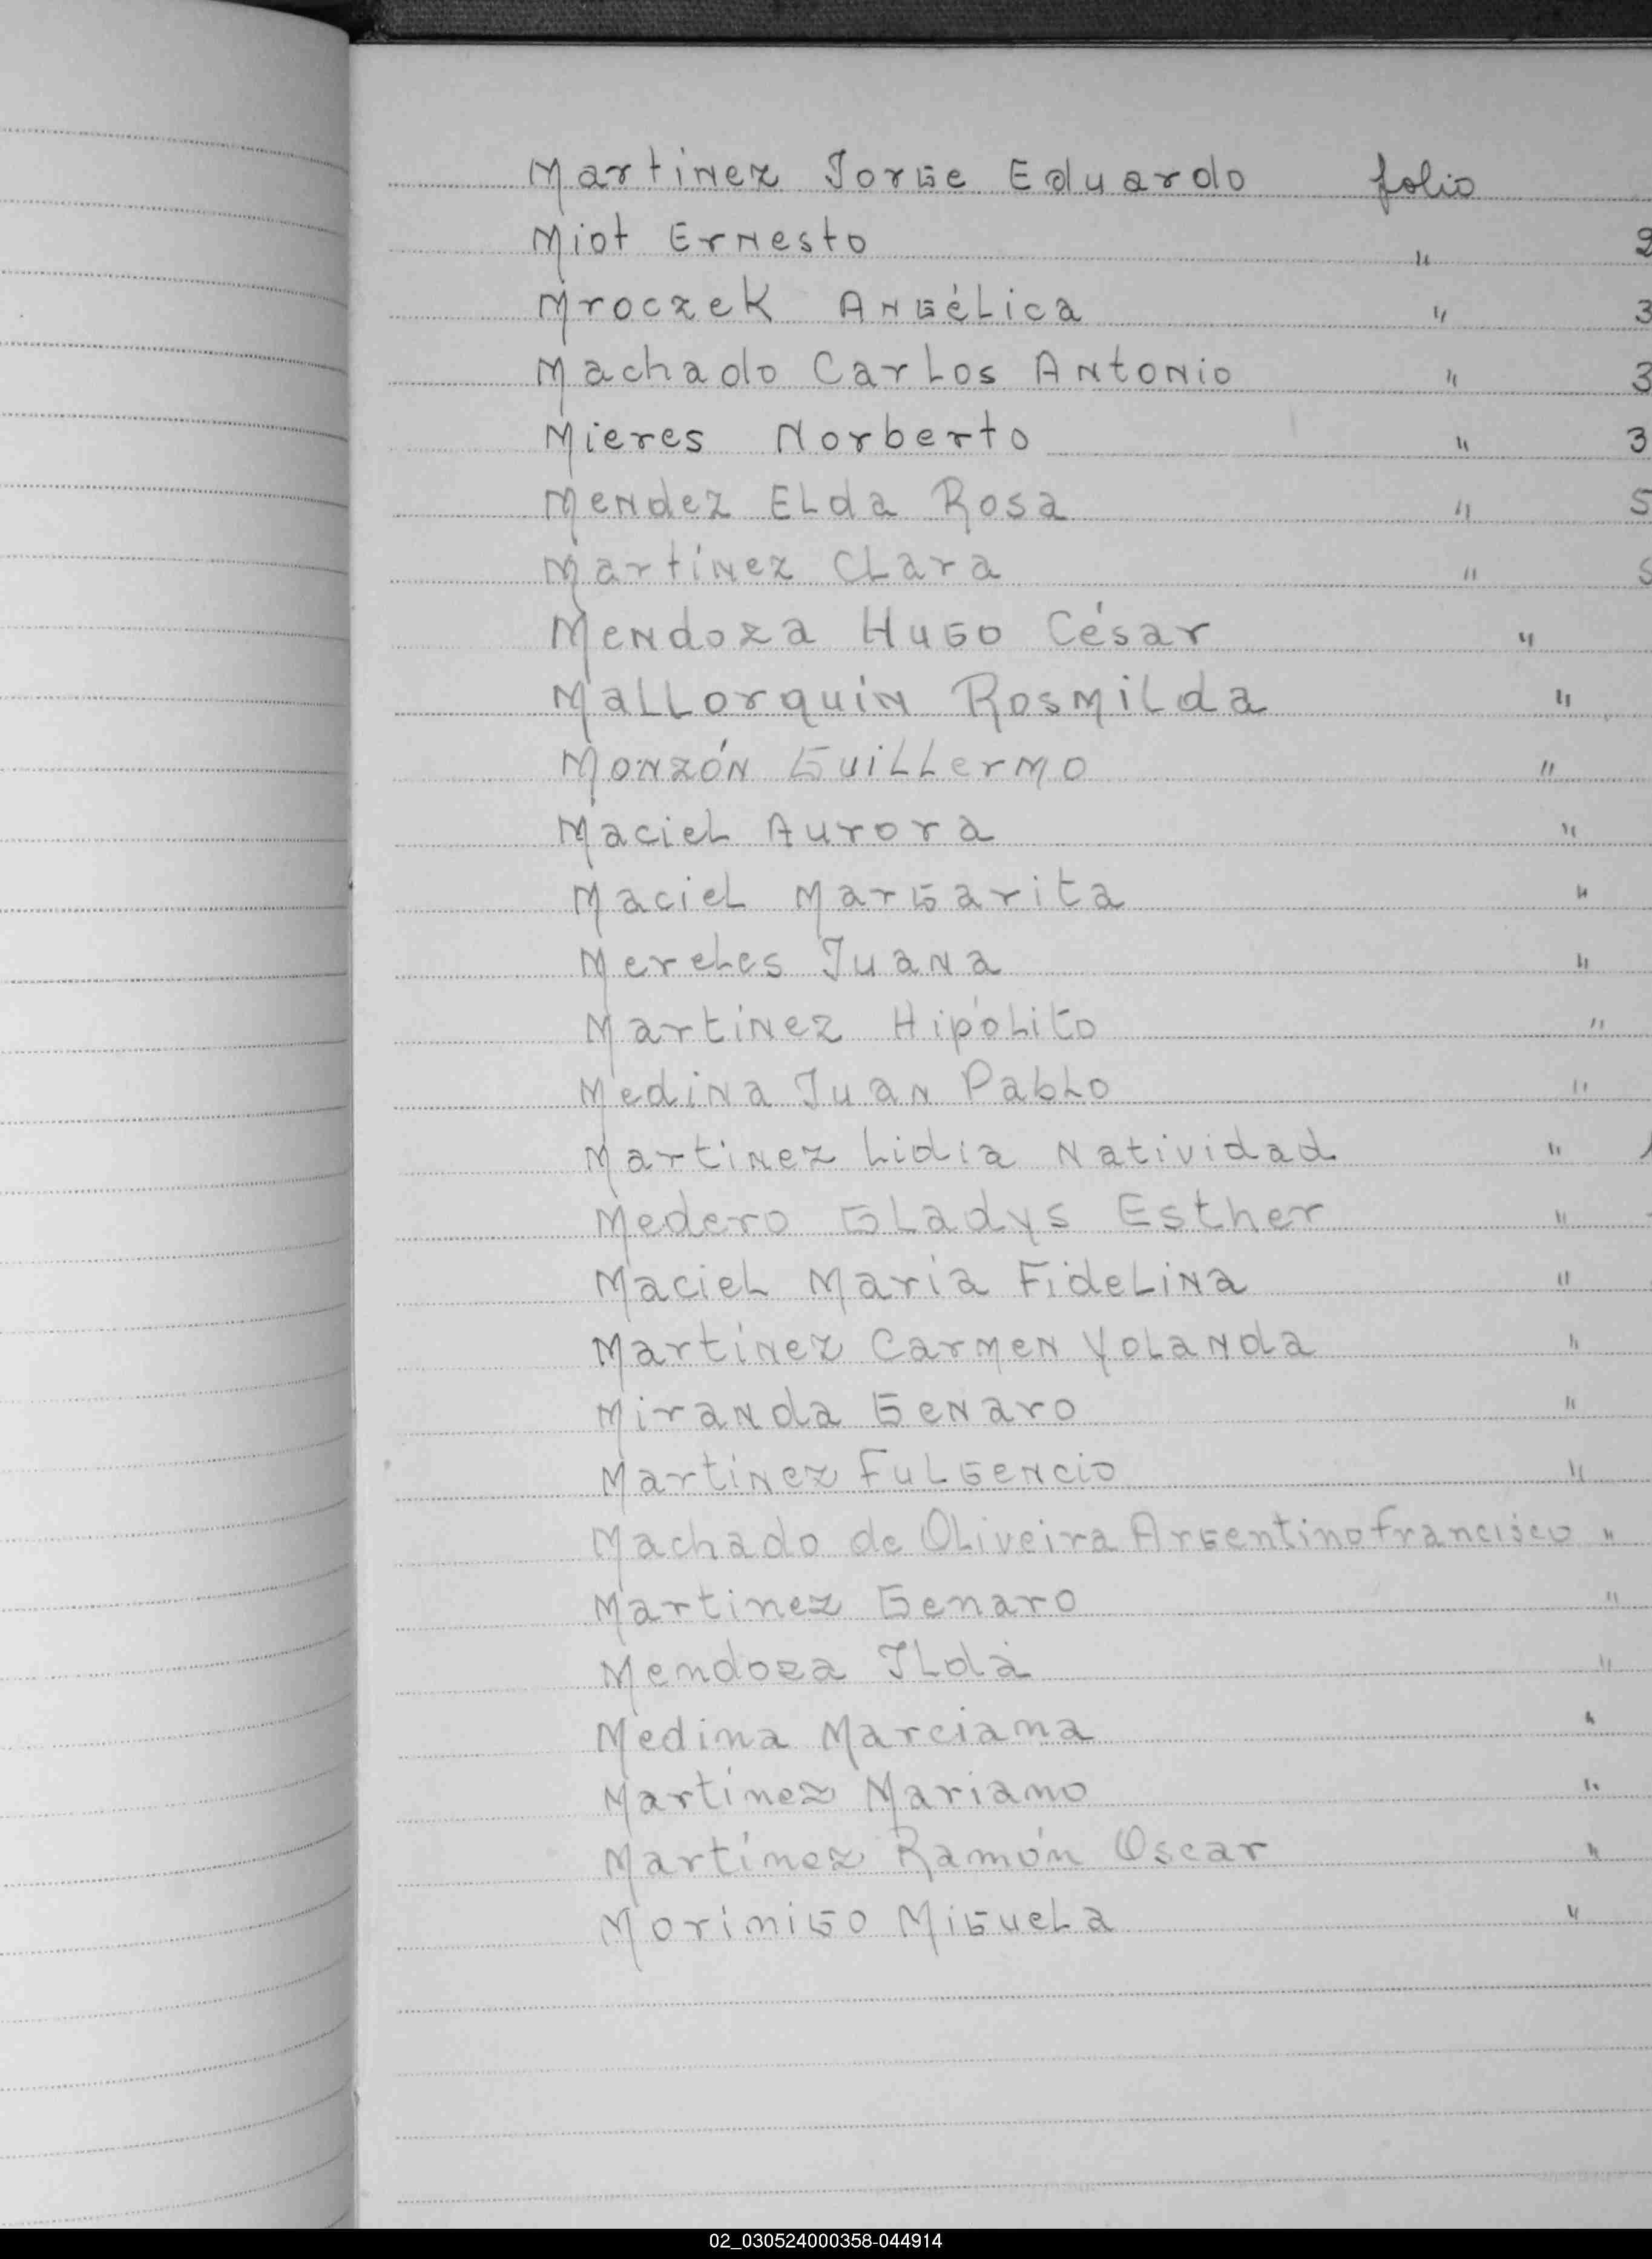 Martinez Jorge Eduardo folio
Miot Ernesto " 2
Mroczek Angélica " 3
Machado Carlos Antonio " 3
Mieres Norberto " 3
Mendez Elda Rosa " 5
Martínez Clara " 5
Mendoza Hugo César "
Mallorquin Rosmilda "
Monzón Guillermo "
Maciel Aurora "
Maciel Margarita "
Mereles Juana "
Martínez Hipólito "
Medina Juan Pablo "
Martinez Lidia Natividad "
Medero Gladys Esther "
Maciel María Fidelina "
Martínez Carmen Yolanda "
Miranda Genaro "
Martínez Fulgencio "
Machado de Oliveira Argentino Francisco "
Martinez Genaro "
Mendoza Ilda "
Medina Marciana "
Martínez Mariano "
Martínez Ramón Oscar "
Morinigo Miguela "
02_030524000358-044914